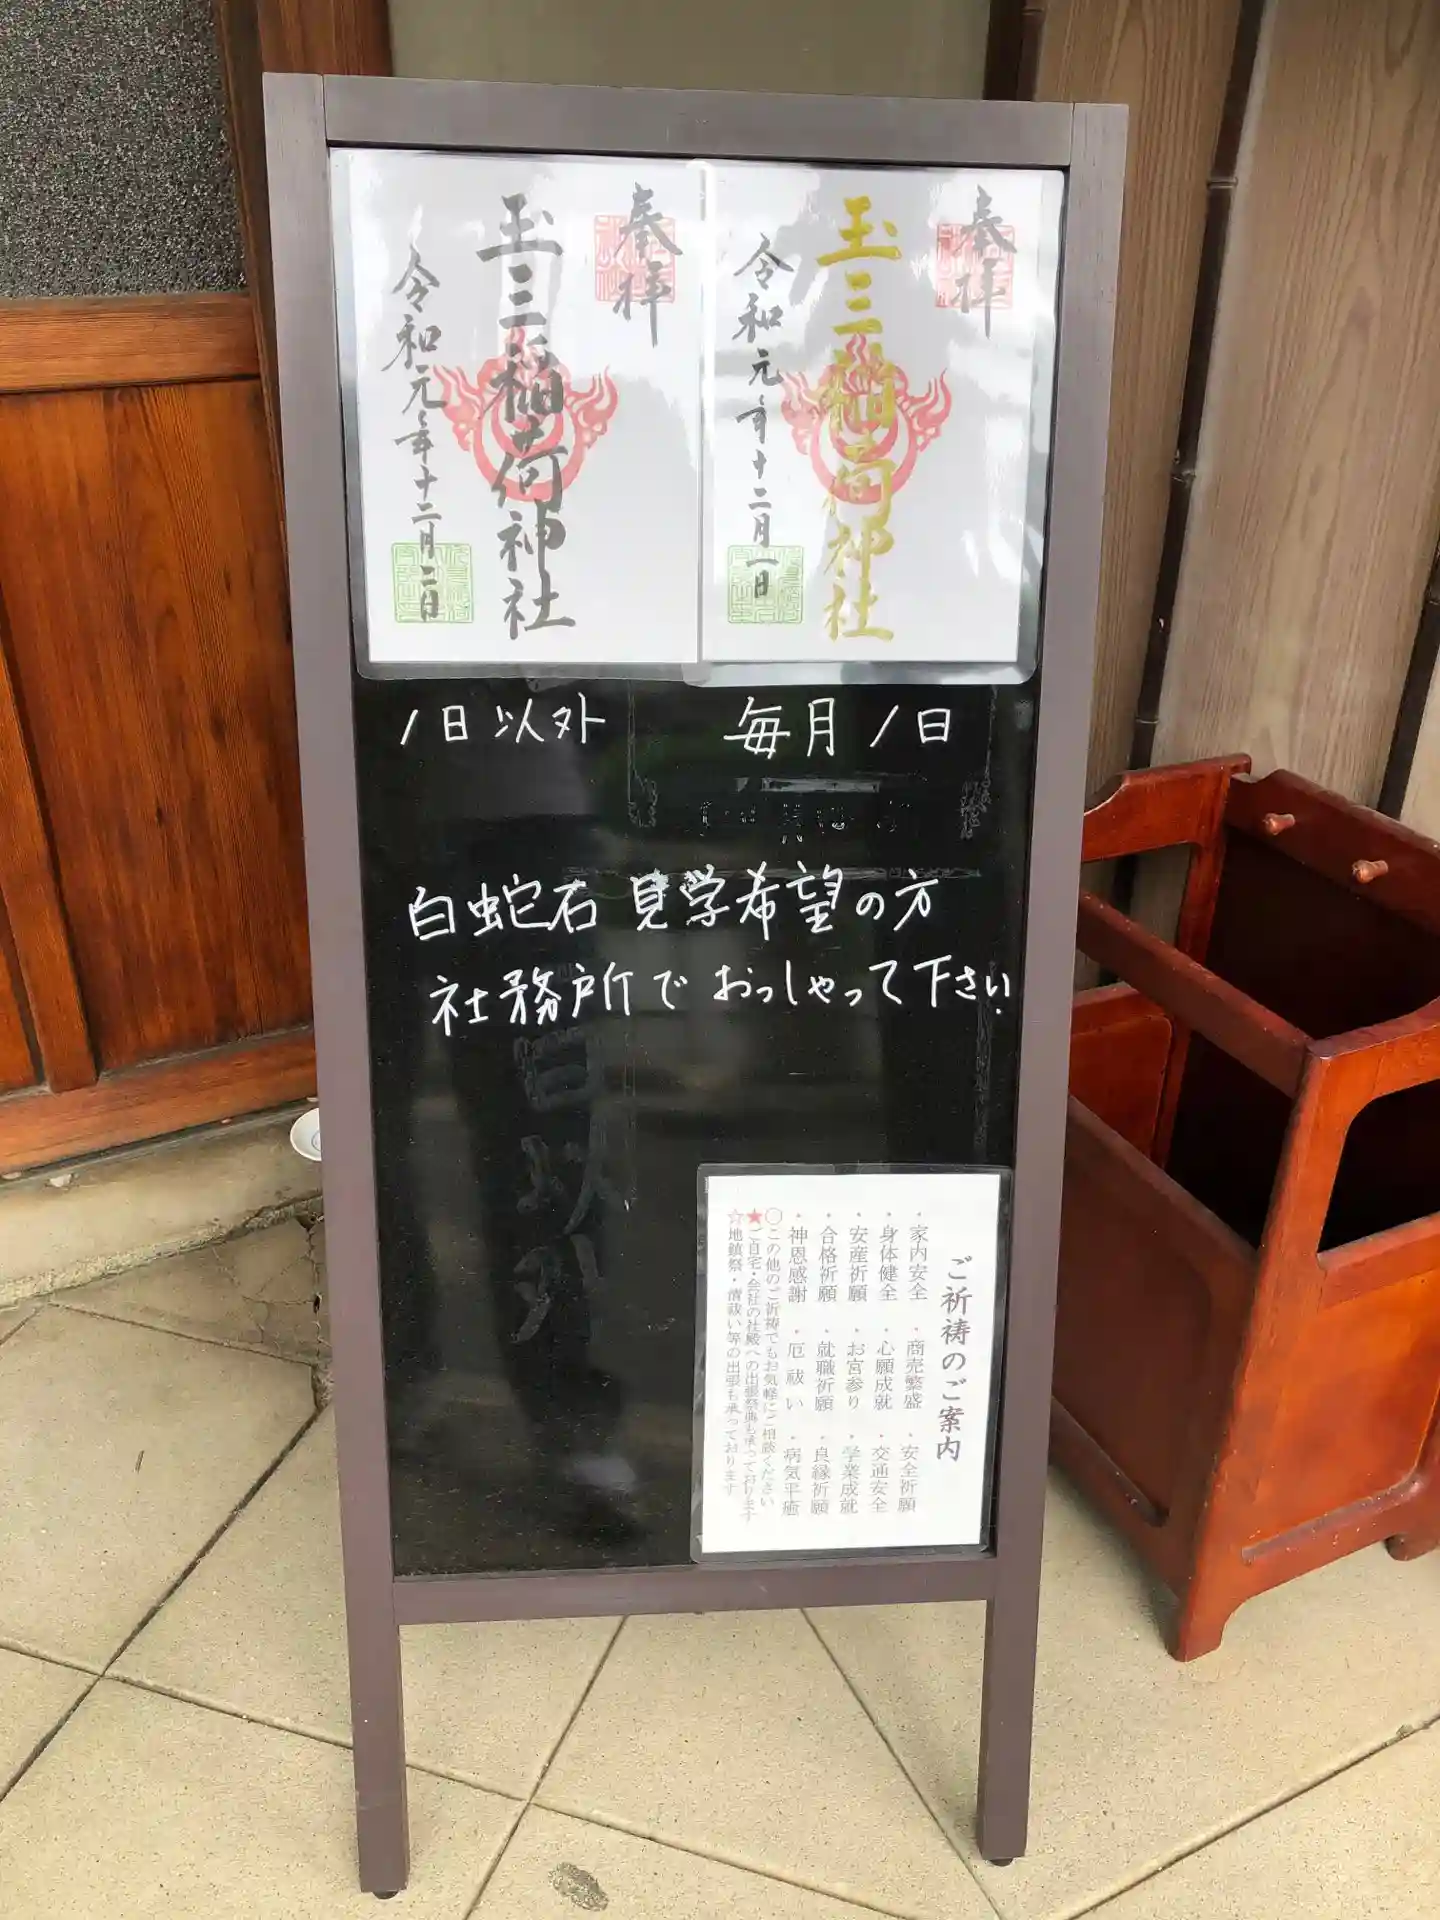 奉拝
玉三稲荷神社
令和元年十二月一日
奉拝
玉三稲荷神社
令和元年十二月二日
毎月1日
1日以外
白蛇石見学希望の方
社務所でおっしゃって下さい
ご祈祷のご案内
・家内安全 ・商売繁盛 ・安全祈願
・身体健全 ・心願成就 ・交通安全
・安産祈願 ・お宮参り ・学業成就
・合格祈願 ・就職祈願 ・良縁祈願
・神恩感謝 ・厄祓い ・病気平癒
○この他のご祈祷でもお気軽にご相談ください
★ご自宅・会社の社殿への出張祭典も承っております
☆地鎮祭・清祓い等の出張も承っております